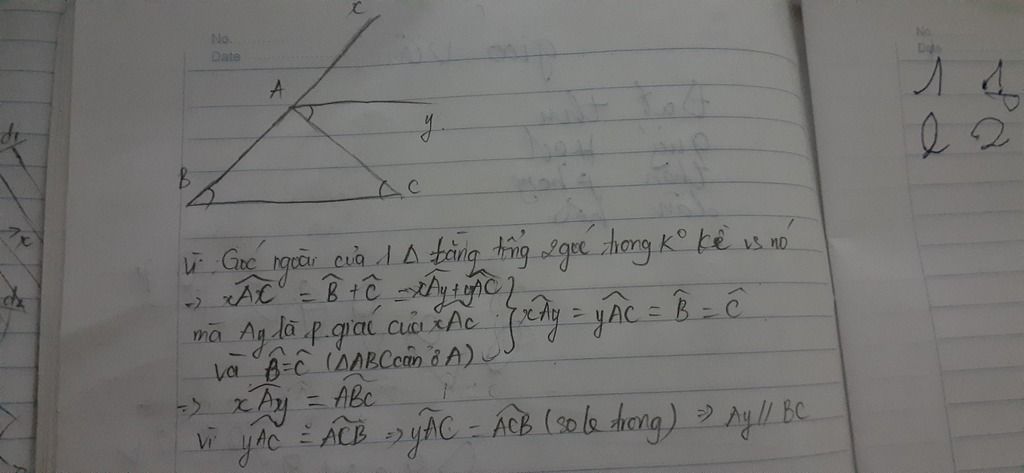 x
No.
Date
A
y.
B
C
d1
x
d2
No.
Date
1 1
2 2
Vì Góc ngoài của 1 Δ bằng tổng 2 góc trong k° kề vs nó
=> xAC = B̂ + Ĉ = xÂy + yÂC
mà Ay là p.giác của xÂc
và B̂ = Ĉ (ΔABC cân ở A)
} xÂy = yÂC = B̂ = Ĉ
=> xÂy = ABc
vì yÂC = ACB => yÂC = ACB (so le trong) => Ay // BC